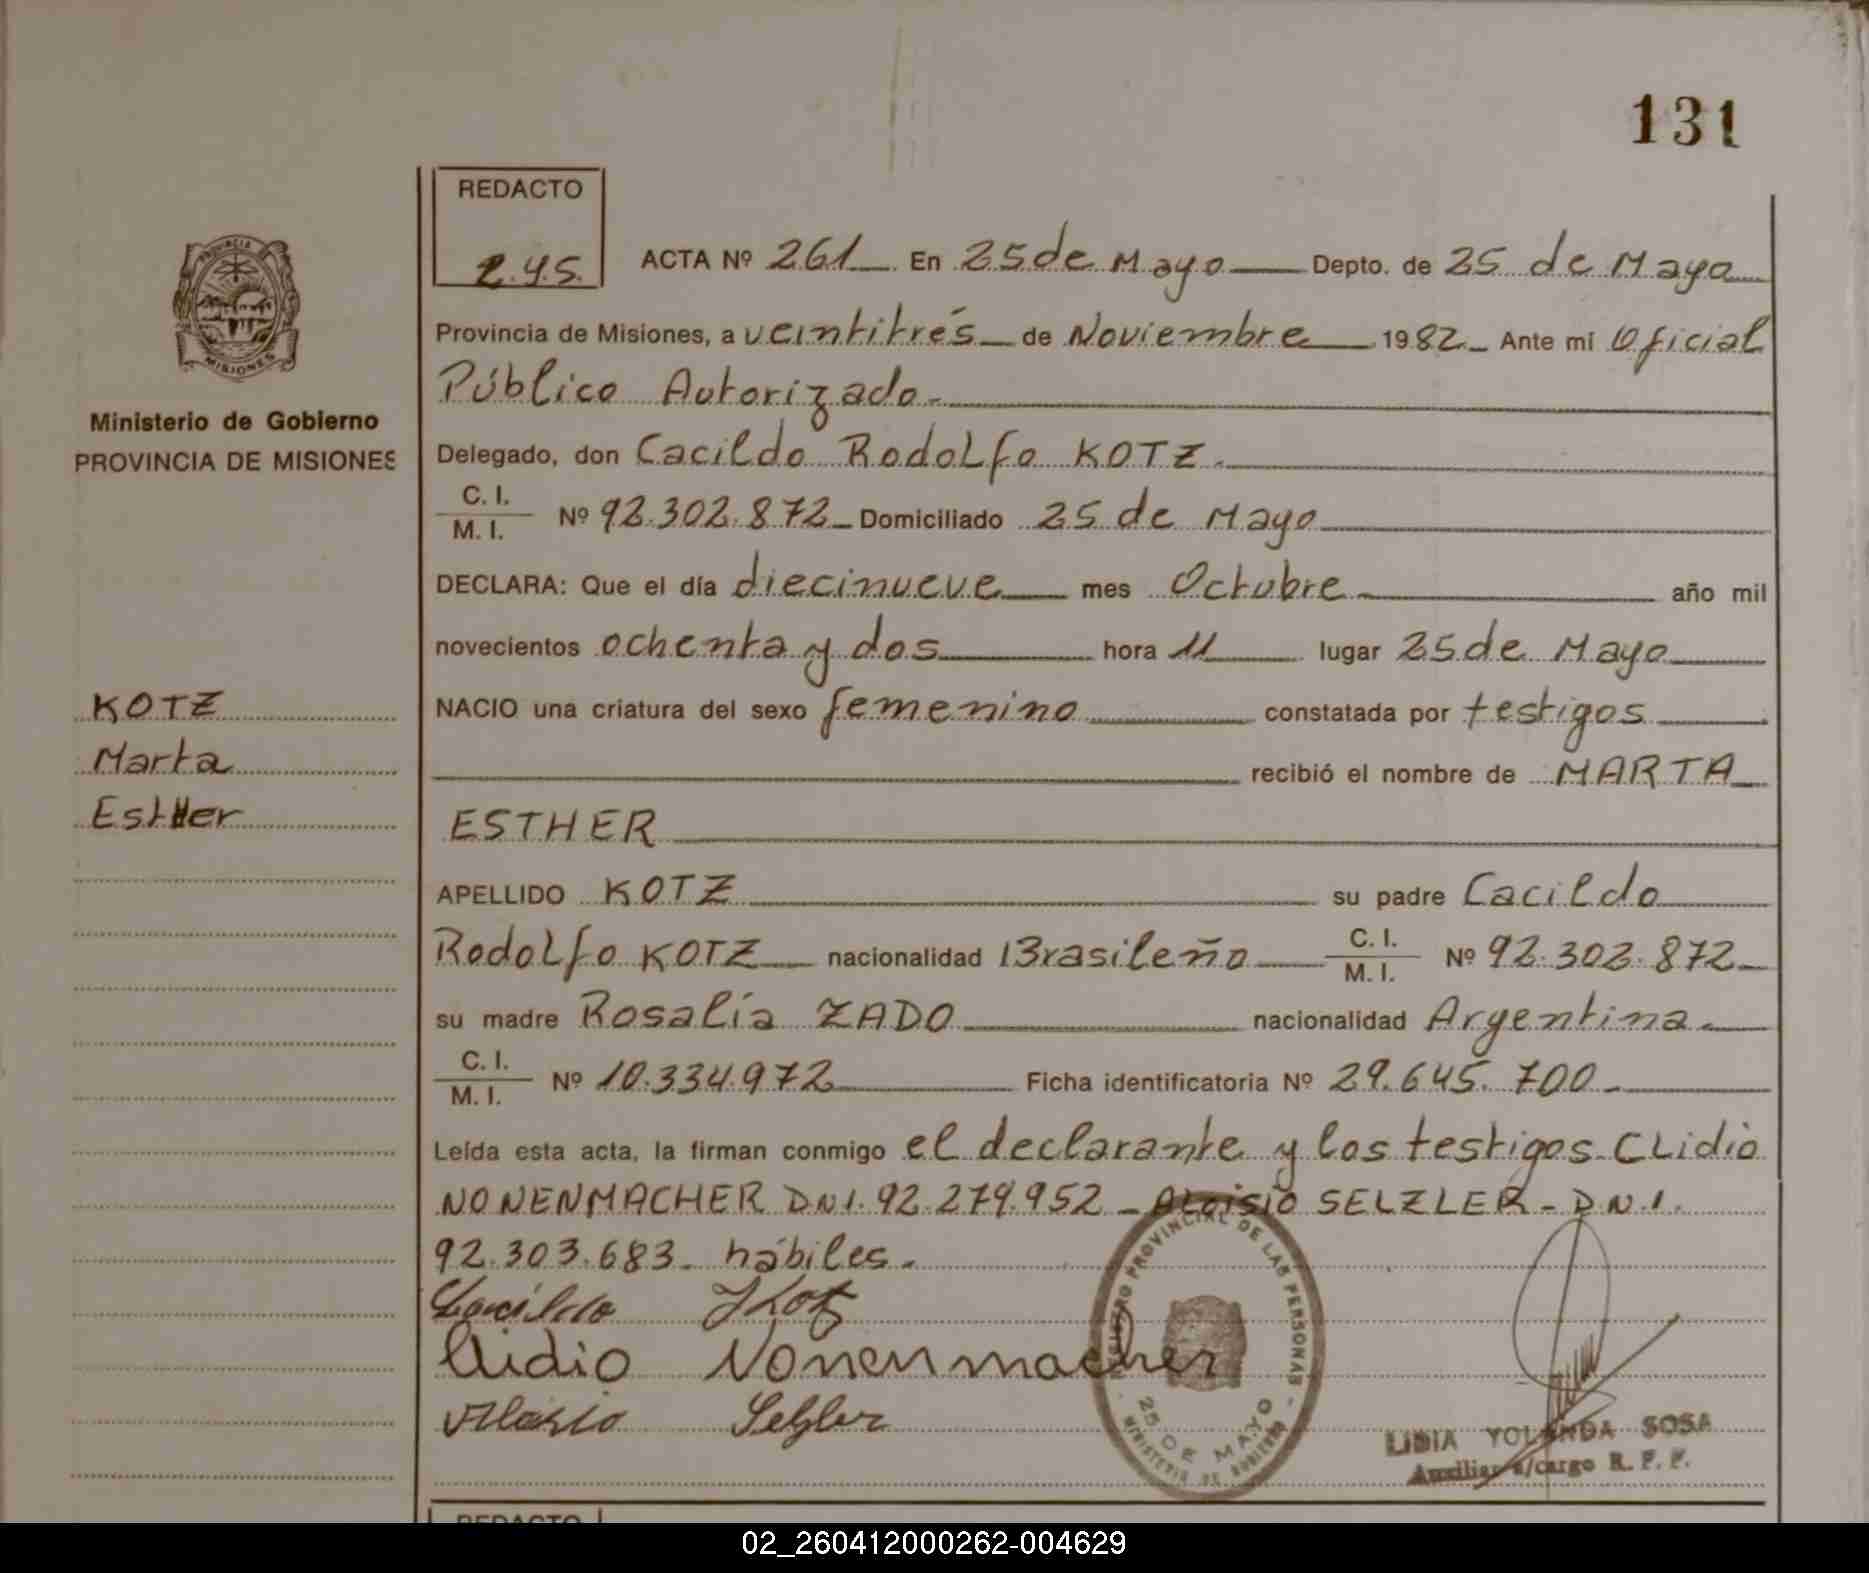 131
REDACTO
L.Y.S.
ACTA Nº 261 En 25 de Mayo Depto. de 25 de Mayo
Provincia de Misiones, a veintitrés de Noviembre 1982 Ante mí Oficial
Público Autorizado.
Delegado, don Cacildo Rodolfo KOTZ.
C. I.
M. I. Nº 92.302.872 Domiciliado 25 de Mayo
DECLARA: Que el día diecinueve mes Octubre año mil
novecientos ochenta y dos hora 11 lugar 25 de Mayo
NACIO una criatura del sexo femenino constatada por testigos
recibió el nombre de MARTA
ESTHER
APELLIDO KOTZ su padre Cacildo
Rodolfo KOTZ nacionalidad Brasileño C. I. M. I. Nº 92.302.872
su madre Rosalía ZADO nacionalidad Argentina.
C. I.
M. I. Nº 10.334.972 Ficha identificatoria Nº 29.645.700
Leída esta acta, la firman conmigo el declarante y los testigos CLidio
NONENMACHER DNI. 92.279.952 - ALoisio SELZLER - D.N.I.
92.303.683. hábiles.
Cacildo Kotz
Clidio Nonenmacher
Aloisio Selzler
PROVINCIA
MISIONES
Ministerio de Gobierno
PROVINCIA DE MISIONES
KOTZ
Marta
Esther
REGISTRO PROVINCIAL DE LAS PERSONAS
25 DE MAYO
MINISTERIO DE GOBIERNO
LIDIA YOLANDA SOSA
Auxiliar a/cargo R. P. P.
REDACTO
02_260412000262-004629